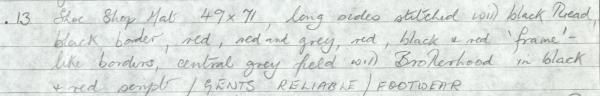 .13 Shoe Shop Mat 49 x 71, long sides stitched with black thread,
black border, red, red and grey, red, black & red 'frame'-
like borders, central grey field with Brotherhood in black
& red script / GENTS RELIABLE / FOOTWEAR